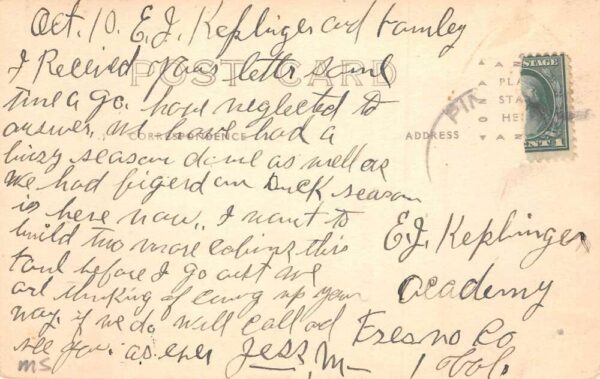 Oct. 10. E. J. Keplinger and famley
I Recived your letter some
POST CARD
time a go. have neglected to
answer. we have had a
CORRESPONDENCE
ADDRESS
buisy season done as well as
we had figerd on Duck season
is here now. I want to
build two more cabins this
faul before I go out we
are thinking of comg up your
way. if we do will call ad
see you. as ever Jess. M
MS
E. J. Keplinger
Academy
Fresno Co
PLA
STA
HE
STAGE
ENT 1
PIN